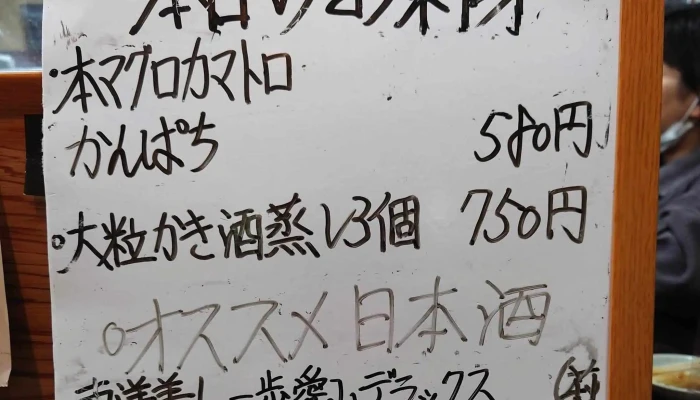 本日のお魚
・本マグロカマトロ
かんぱち 580円
○大粒かき酒蒸し3個 750円
○オススメ日本酒
南洋美人 一歩 デラックス